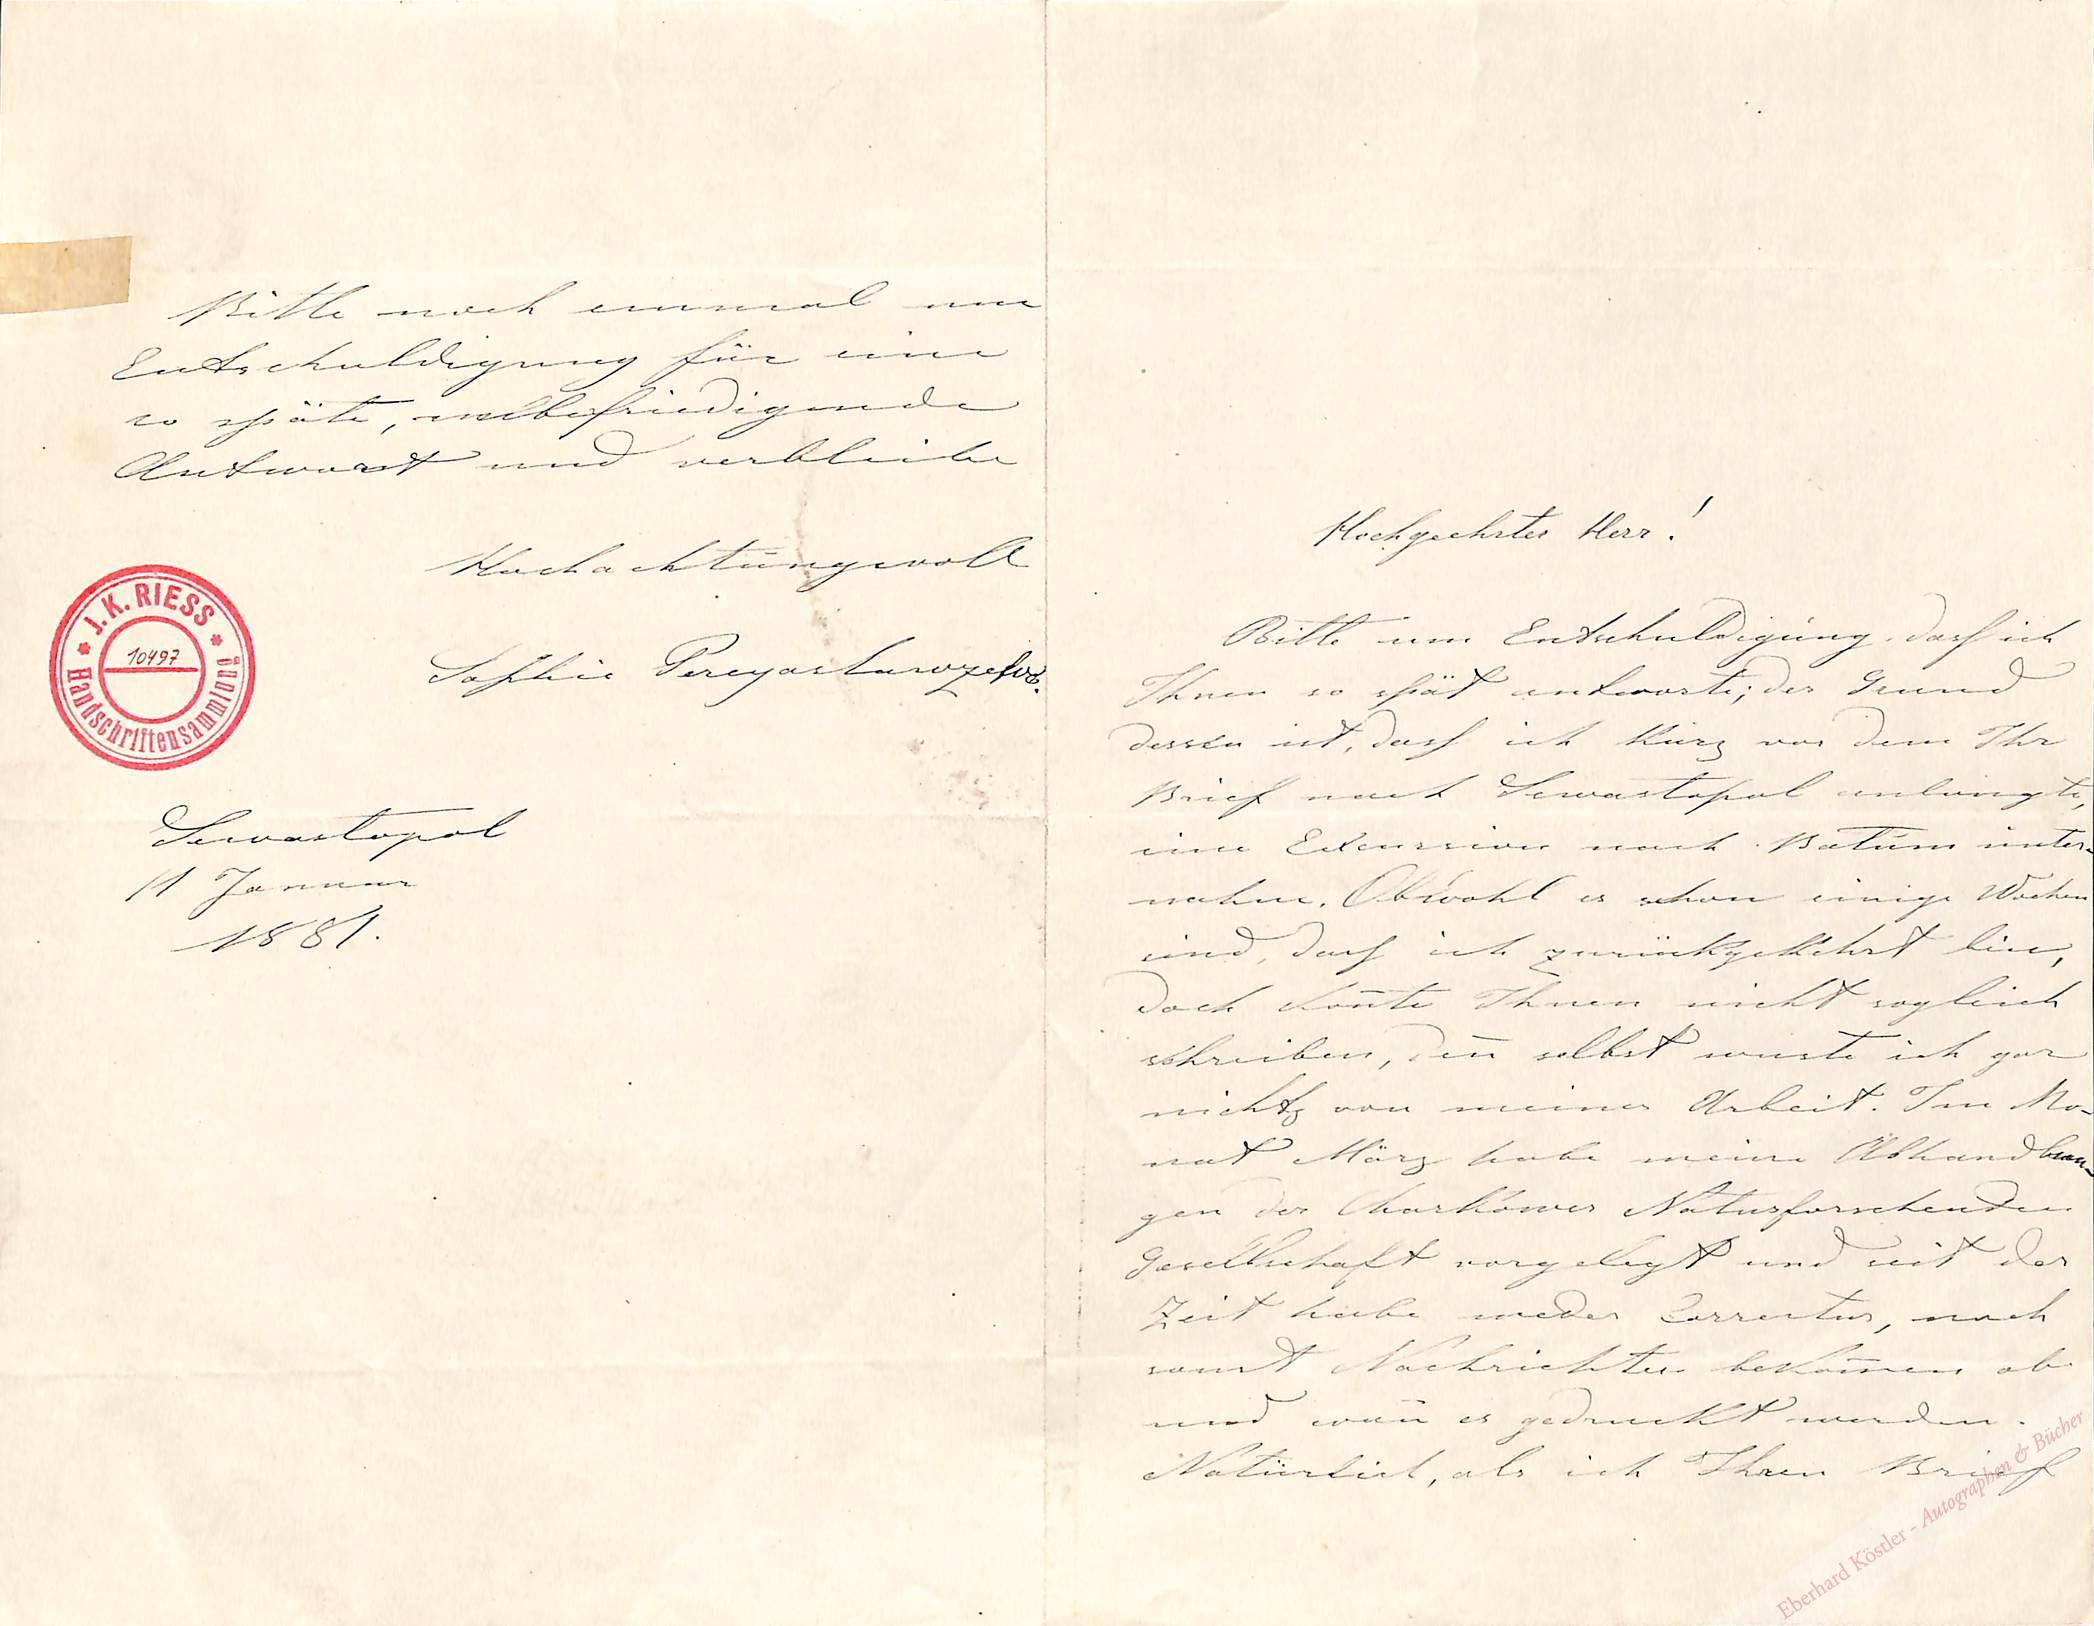 Hochgeehrter Herr!
Bitte um Entschuldigung, dasf ich
Ihnen so spät antworte; der Grund
dessen ist, dasf ich kurz vor dem Ihr
Brief nach Sewastopol anlangte,
eine Excursion nach Batum unter-
nahm. Obwohl es schon einige Wochen
sind, dasf ich zurückgekehrt bin,
doch kon̄te Ihnen nicht sogleich
schreiben, den̄ selbst wuste ich gar
nichts von meiner Arbeit. Im Mo-
nat März habe meine Abhandlun-
gen der Charkower Naturforschenden
Gesellschaft vorgelegt und seit der
Zeit habe weder Correctur, noch
sonst Nachrichten bekom̄en ob
und wan̄ es gedruckt werden.
Natürlich, als ich Ihren Brief
Bitte noch einmal um
Entschuldigung für eine
so späte, unbefriedigende
Antwort und verbleibe
Hochachtungsvoll
Sophie Pereyaslawzewa.
Sewastopol
11 Januar
1881.
J. K. RIESS
10497
Handschriftensammlung
Eberhard Köstler - Autographen & Bücher